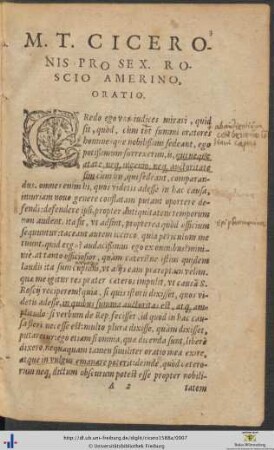 M. T. CICERO-
NIS PRO SEX. RO-
SCIO AMERINO,
ORATIO.
CRedo ego vos iudices mirari, quid
sit, quòd, cùm tot summi oratores
hominesque nobilissimi sedeant, ego
potissimum surrexerim, is, qui neque
ætate, neq; ingenio, neq; auctoritate
sim cum iis, qui sedeant, comparan-
dus. omnes enim hi, quos videtis adesse in hac causa,
iniuriam nouo scelere conflatam putant oportere de-
fendi: defendere ipsi propter iniquitatem temporum
non audent. ita fit, vt adsint, propterea quòd officium
sequuntur: taceant autem idcirco, quia periculum me-
tuunt. quid ergo? audacissimus ego ex omnibus? mini-
mè. at tanto officiosior, quàm ceteri? ne istius quidem
laudis ita sum cupidus, vt aliis eam præreptam velim.
quæ me igitur res præter ceteros impulit, vt causam S.
Roscij reciperem? quia, si quis istorū dixisset, quos vi-
detis adesse, in quibus summa auctoritas est, atq; am-
plitudo: si verbum de Rep. fecisset, id quod in hac cau-
sa fieri necesse est: multo plura dixisse, quàm dixisset,
putaretur: ego etiam si omnia, quæ dicenda sunt, liberè
dixero, nequaquam tamen similiter oratio mea exire,
atque in vulgus emanare poterit. deinde, quòd cetero-
rum neq; dictum obscurum potest esse propter nobili-
A 2 tatem
http://dl.ub.uni-freiburg.de/diglit/cicero1588a/0007
© Universitätsbibliothek Freiburg